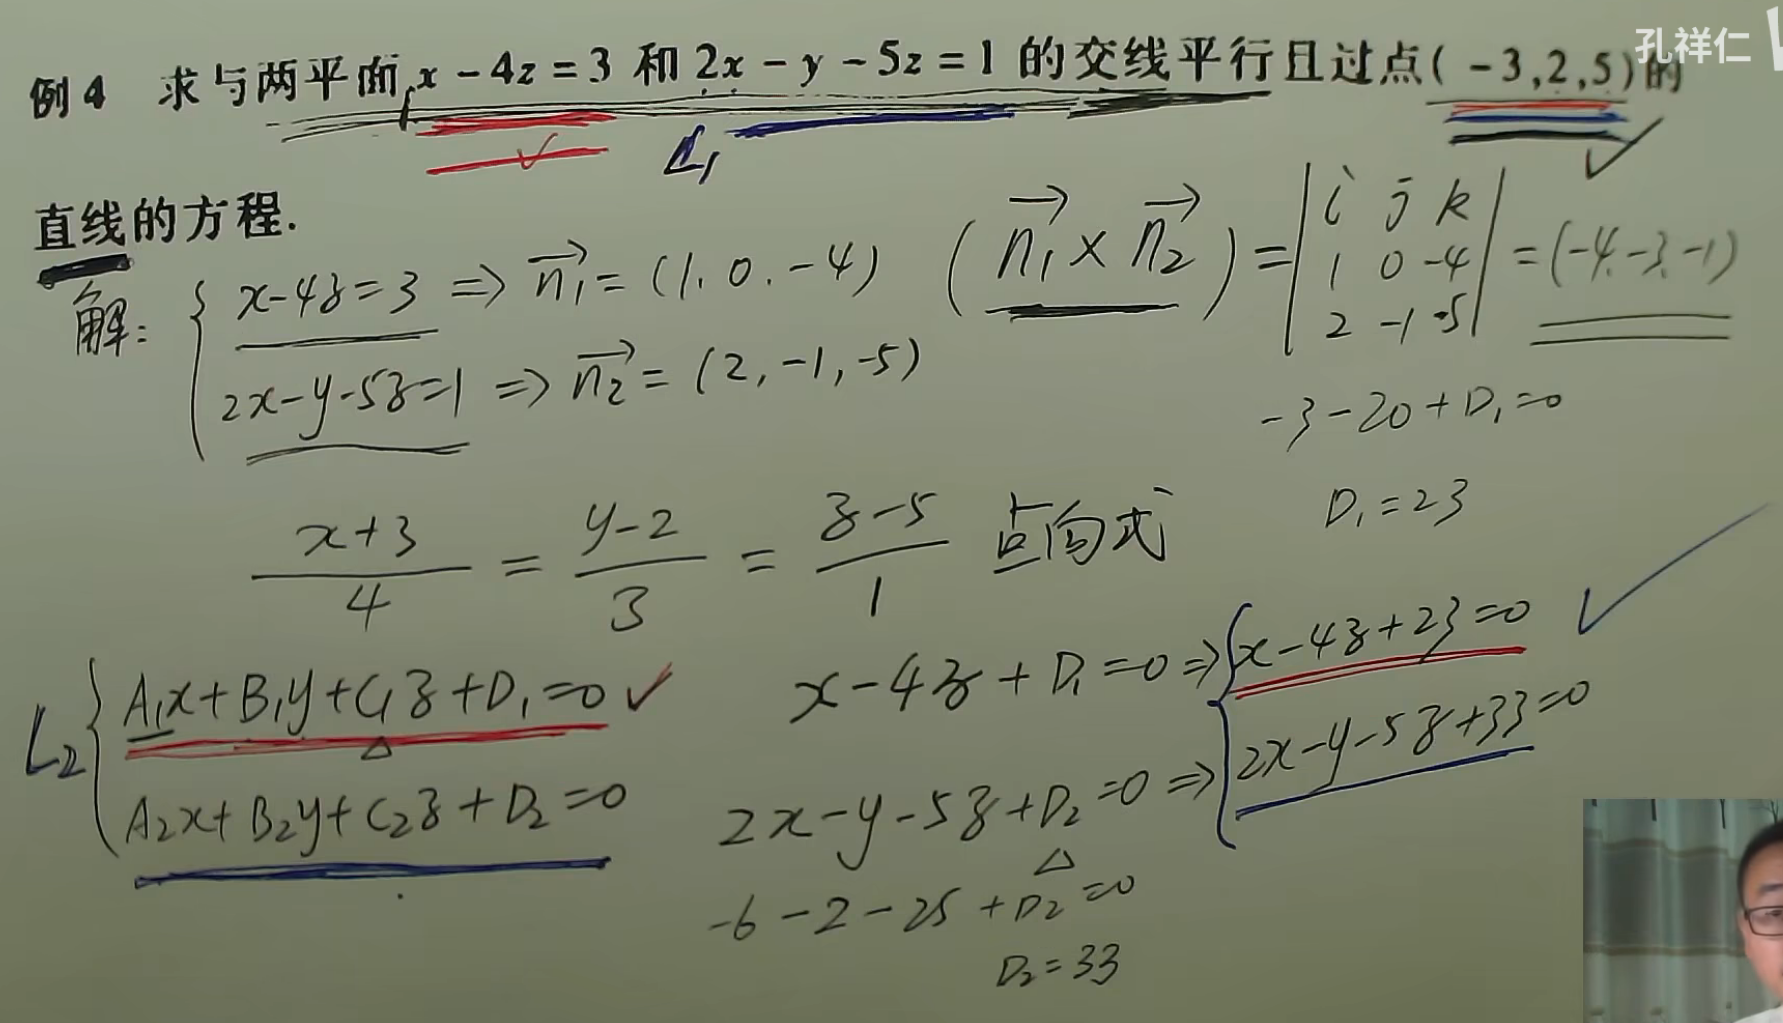 孔祥仁
例4 求与两平面 x - 4z = 3 和 2x - y - 5z = 1 的交线平行且过点( -3,2,5)的
L₁
直线的方程.
解: { x-4z=3 ⇒ n₁→ = (1, 0, -4)
2x-y-5z=1 ⇒ n₂→ = (2, -1, -5)
( n₁→ × n₂→ ) = | i j k
1 0 -4
2 -1 -5 | = (-4, -3, -1)
-3-20+D₁=0
D₁=23
(x+3)/4 = (y-2)/3 = (z-5)/1 点向式
L₂ { A₁x+B₁y+C₁z+D₁=0 ✓
A₂x+B₂y+C₂z+D₂=0
x-4z+D₁=0 ⇒ { x-4z+23=0 ✓
2x-y-5z+D₂=0 ⇒ 2x-y-5z+33=0
-6-2-25+D₂=0
D₂=33